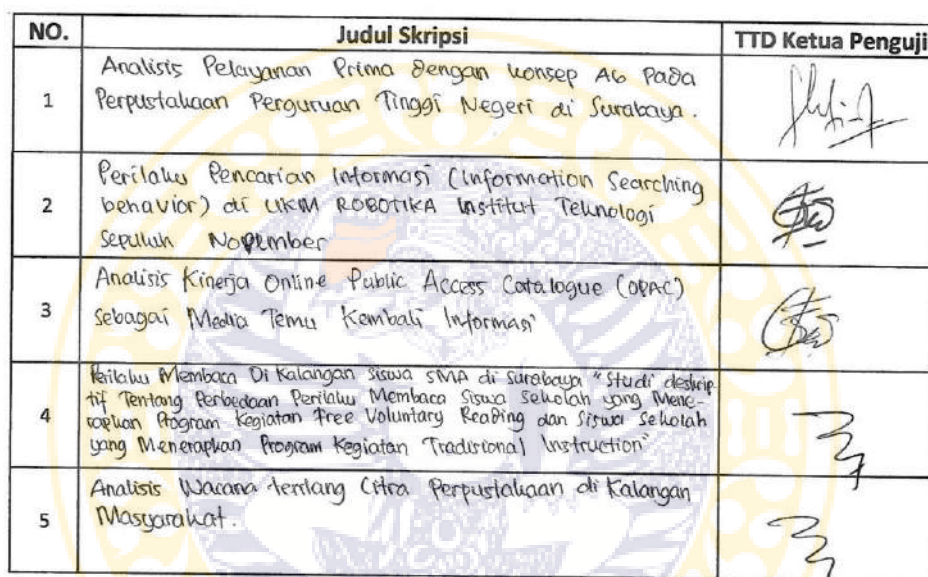 NO. Judul Skripsi TTD Ketua Penguji
1 Analisis Pelayanan Prima dengan konsep A6 pada
Perpustakaan Perguruan Tinggi Negeri di Surabaya.
2 Perilaku Pencarian Informasi (Information Searching
behavior) di UKM ROBOTIKA Institut Teknologi
Sepuluh Nopember
3 Analisis Kinerja Online Public Access Catalogue (OPAC)
sebagai Media Temu Kembali Informasi
4 Perilaku Membaca Di Kalangan siswa SMA di Surabaya "Studi deskrip-
tif Tentang Perbedaan Perilaku Membaca Siswa Sekolah yang Mene-
rapkan Program Kegiatan Free Voluntary Reading dan Siswa Sekolah
yang Menerapkan Program Kegiatan Tradisional Instruction"
5 Analisis Wacana tentang Citra Perpustakaan di Kalangan
Masyarakat.